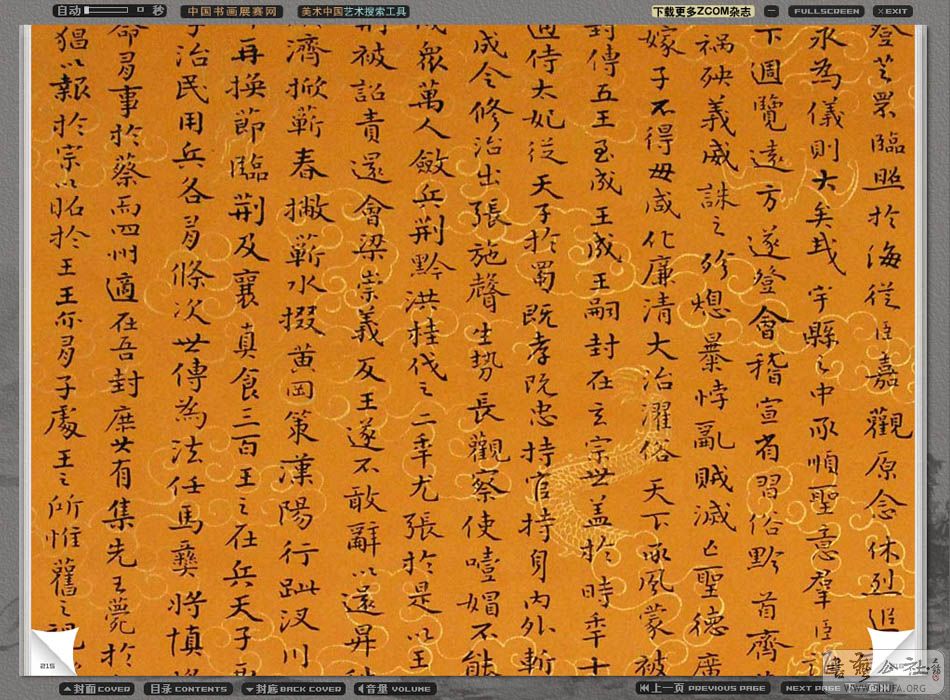 自动 秒
中国书画展赛网
美术中国艺术搜索工具
下载更多ZCOM杂志
FULLSCREEN
EXIT
登芝罘臨照於海從臣嘉觀原念休烈追
永為儀則大矣哉宇縣之中承順聖意群臣
下週覽遠方遂登會稽宣省習俗黔首齊
禍殃義威誅之殄熄暴悖亂賊滅亡聖德廣
嫁子不得毋咸化廉清大治濯俗天下承風蒙被
封傳五王至成王成王嗣封在玄宗世盖於時年十
通侍太妃從天子於蜀既孝既忠持官持身内外斬
成令修治出張施聲生勢長觀察使噎媢不能
眾萬人斂兵荆黔洪桂伐之二年尤張於是以王
被詔責還會梁崇義反王遂不敢辭以還昇
濟掀蘄春撇蘄水掇黄岡策漢陽行跐汊川
再換節臨荆及襄真食三百王之在兵天子
治民用兵各有條次世傳為法任馬彝將慎
命有事於蔡而四州適在吾封庶世有集先王薨於
猖以報於宗以昭於王王亦有子處王之所惟舊之視
215
封面 COVER
目录 CONTENTS
封底 BACK COVER
音量 VOLUME
上一页 PREVIOUS PAGE
NEXT PAGE